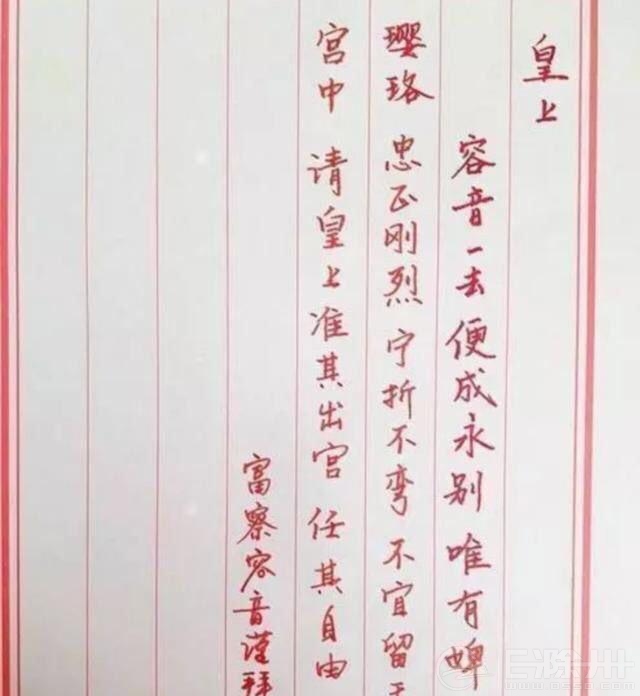 皇上
容音一去便成永别 唯有婢
璎珞 忠正刚烈 宁折不弯 不宜留于
宫中 请皇上准其出宫 任其自由
富察容音谨拜
E滁州